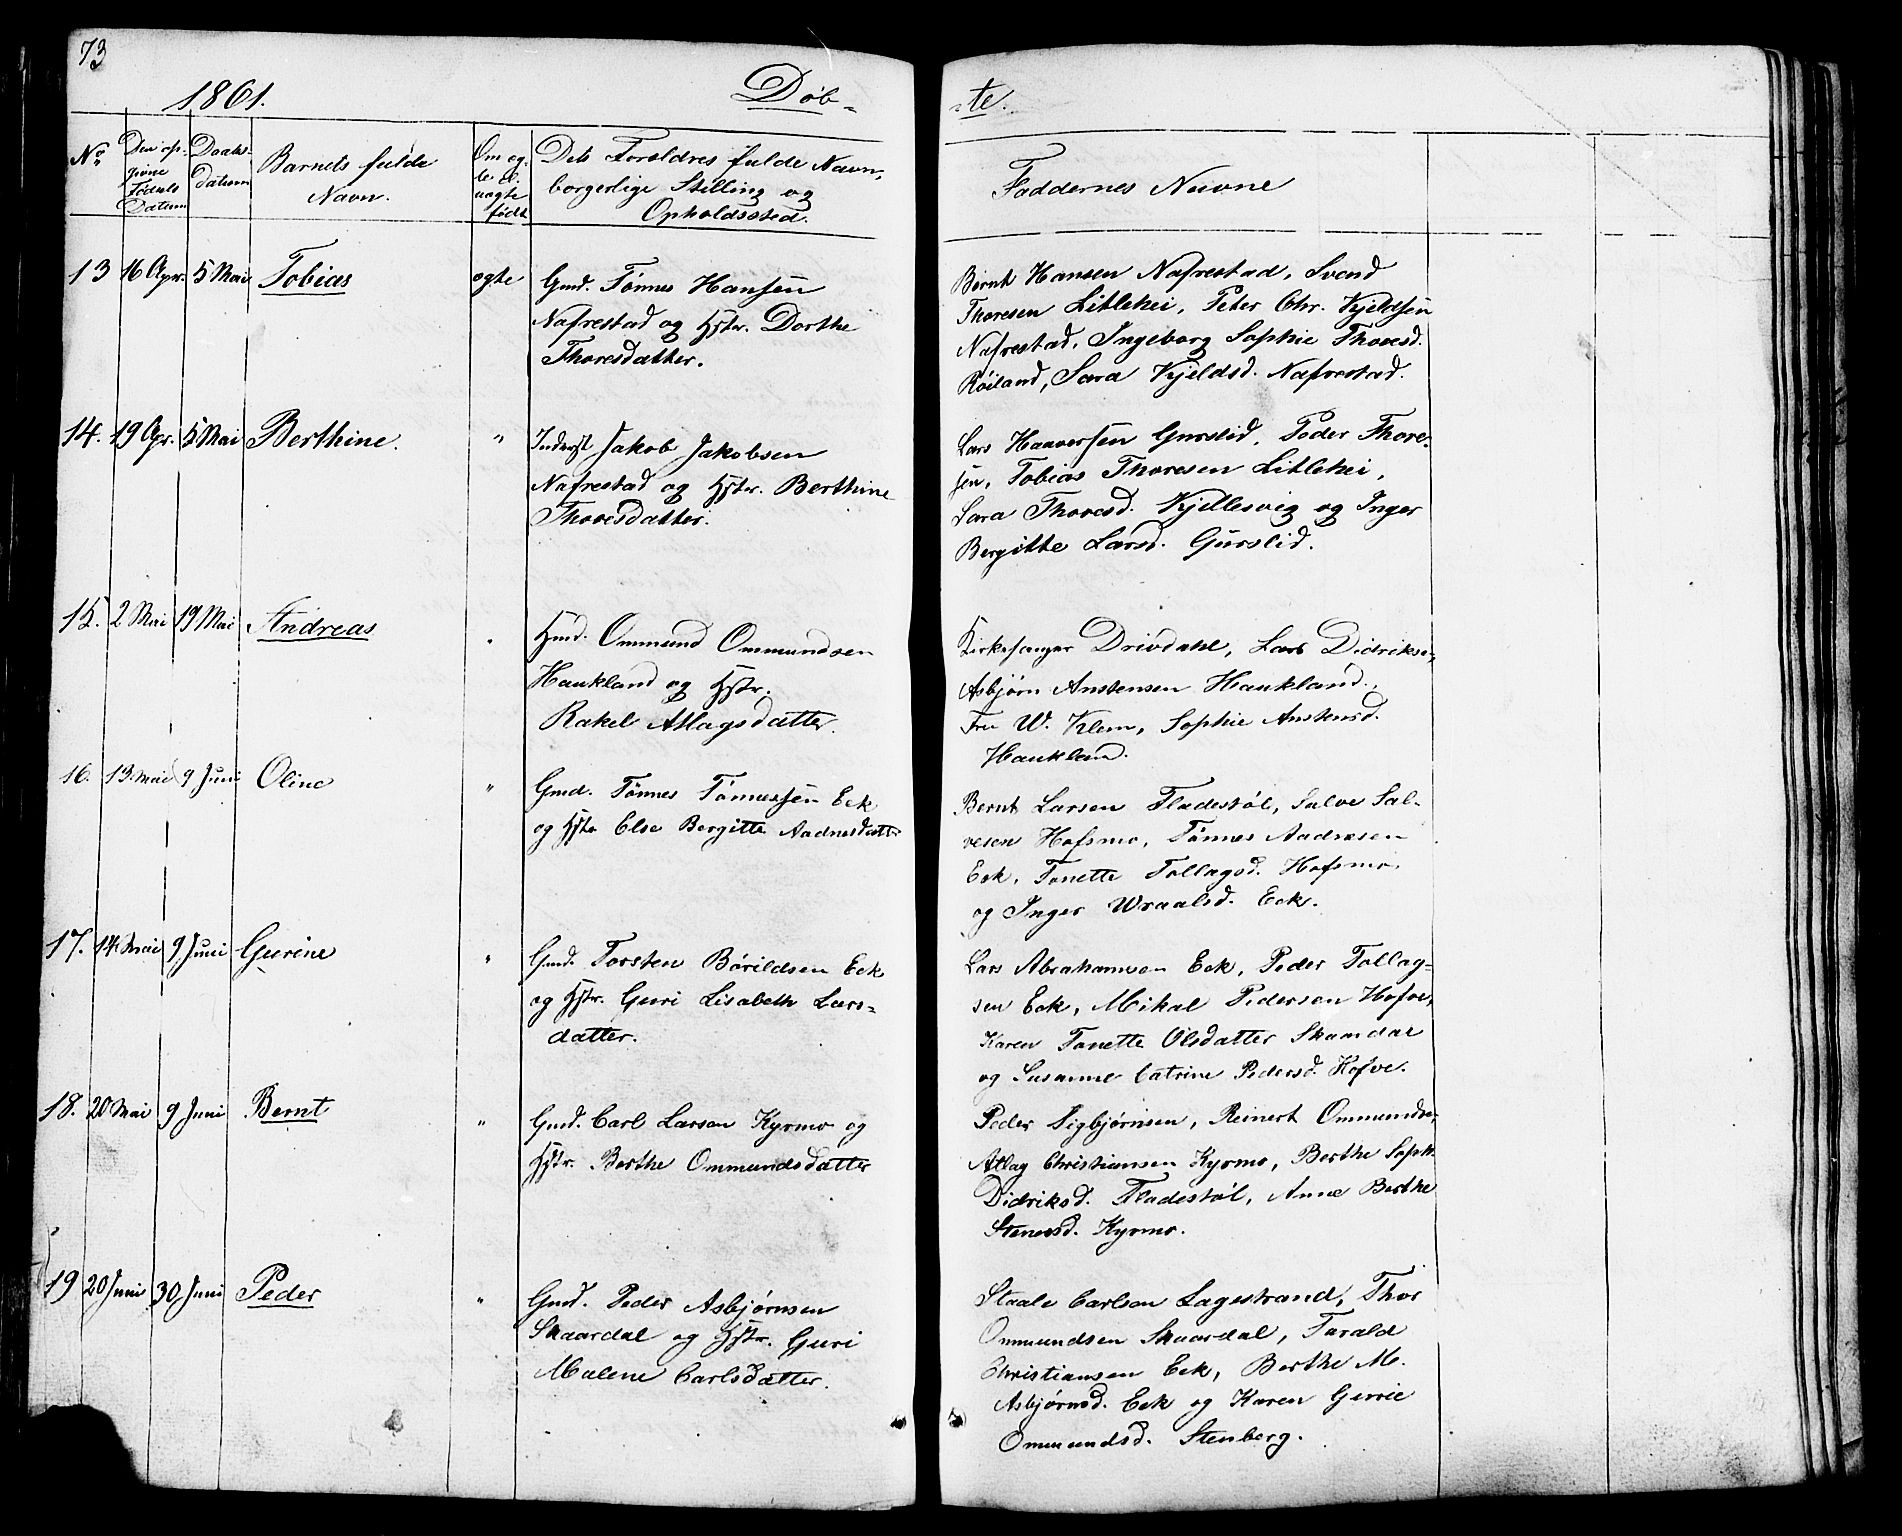 73
1861. Døb-
-te.
No Den op-givne Fødsels Datum Daabs-datum Barnets fulde Navn. Om eg-te el. uegte født Dets Forældres fulde Navn, borgerlige Stilling og Opholdssted. Faddernes Navne
13 16 Apr. 5 Mai Tobias egte Gmd. Tönnes Hansen
Nafrestad og Hstr. Dorthe
Thoresdatter.
Bernt Hansen Nafrestad, Svend
Thoresen Litlehei, Peter Chr. Kjeldsen
Nafrestad, Ingeborg Sophie Thoresd.
Röiland, Sara Kjeldsd. Nafrestad.
14. 19 Apr. 5 Mai Berthine. " Inderst Jakob Jakobsen
Nafrestad og Hstr. Berthine
Thoresdatter.
Lars Haaversen Gurslid, Peder Thore-
sen, Tobias Thoresen Litlehei,
Sara Thoresd. Kjellesvig og Inger
Bergitte Larsd. Gurslid.
15. 2 Mai 19 Mai Andreas " Hmd. Ommund Ommundsen
Haukland og Hstr.
Rakel Atlagsdatter.
Kirkesanger Drivdahl, Lars Didriksen,
Asbjørn Anstensen Haukland,
Fru W. Klem, Sophie Anstensd.
Hauklan.
16. 13 Mai 9 Juni Oline " Gmd. Tönnes Tönnessen Eek
og Hstr Else Bergitte Aadnesdatter
Bernt Larsen Fladestöl, Salve Sal-
vesen Hofsmo, Tönnes Aadnesen
Eek, Tonette Tollagsd. Hofsmo,
og Inger Wraalsd. Eek.
17. 14 Mai 9 Juni Gurine " Gmd. Torsten Börildsen Eek
og Hstr. Guri Lisabeth Lars-
datter.
Lars Abrahamsen Eek, Peder Tollag-
sen Eek, Mikal Pedersen Hofve,
Karen Tonette Olsdatter Skaardal
og Susanne Catrine Pedersd. Hofve.
18. 20 Mai 9 Juni Bernt " Gmd. Carl Larsen Kyrmo og
Hstr. Berthe Ommundsdatter
Peder Sigbjørnsen, Reinert Ommundsen,
Atlag Christiansen Kyrmo, Berthe Soph.
Didriksd. Fladestøl, Anne Berthe
Stenersd. Kyrmo.
19 20 Juni 30 Juni Peder " Gmd. Peder Asbjørnsen
Skaardal og Hstr. Guri
Malene Carlsdatter.
Staale Carlsen Lagestrand, Thor
Ommundsen Skaardal, Tarald
Christiansen Eek, Berthe M.
Asbjørnsd. Eek og Karen Gurie
Ommundsd. Stenberg.